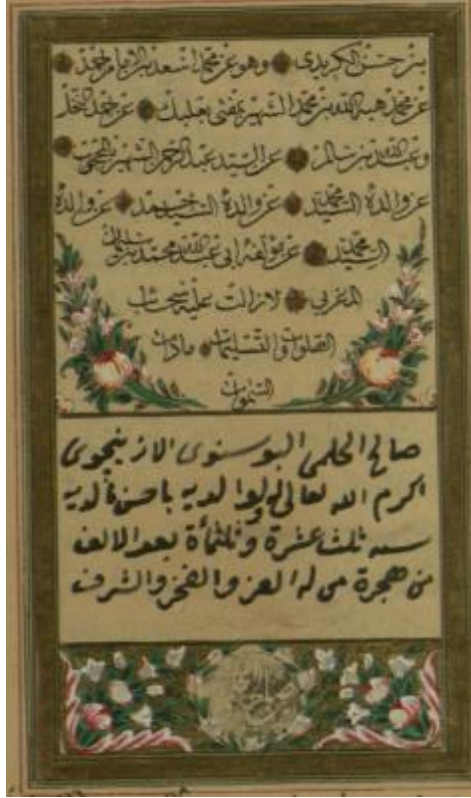 بن حسن الكريدى وهو عن محمد اسعد بن الامام احمد
عن محمد هبة الله بن محمد الشهير بمفتى بعلبك عن احمد النخلى
وعبد الله بن سالم عن السيد عبد الرحمن الشهير بالمحجوب
عن والده السيد محمد عن والده السيد احمد عن والده
السيد محمد عن مؤلفه ابى عبد الله محمد بن سليمان
المغربى لا زالت عليه سحائب
الصلوات والتسليمات مادات
السموات
صالح الحلمى البوسنوى الازينجوى
اكرم الله تعالى له ولوالديه باحسن مالديه
سنه ثلث عشرة وثلثمأة بعد الالف
من هجرة من له العز والفخر والشرف